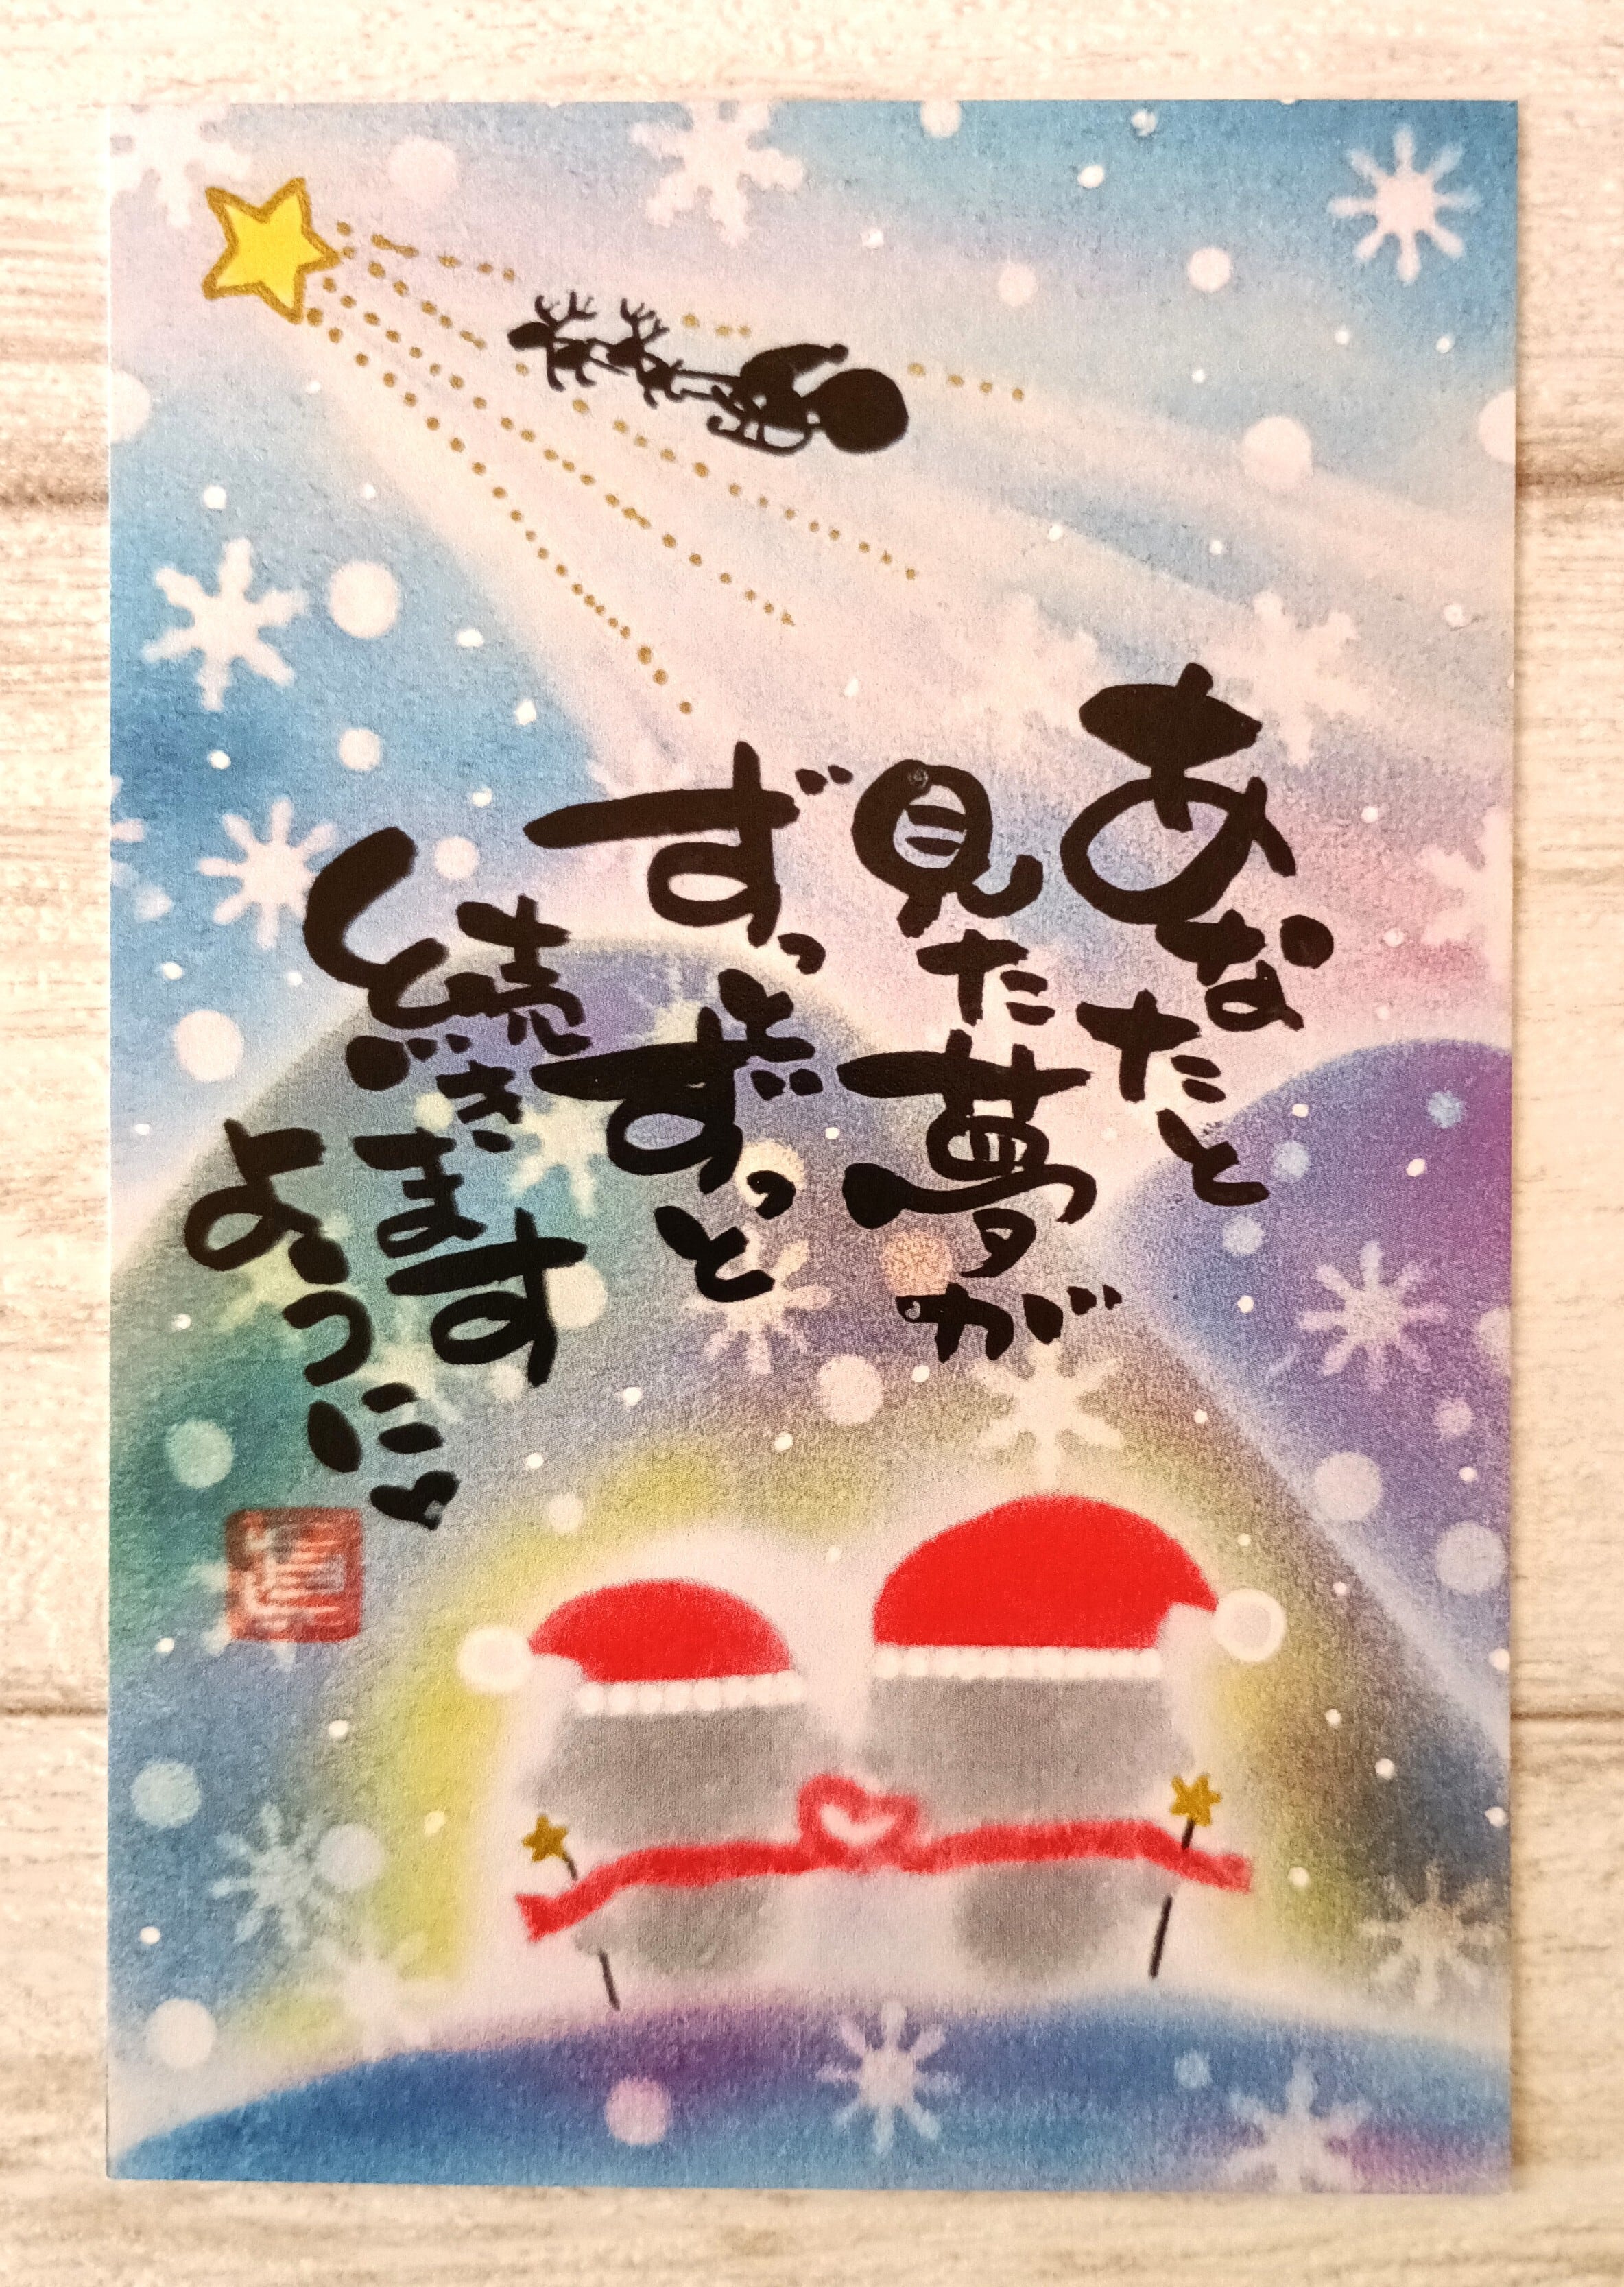 あなたと
見た夢が
ずっとずっと
続きます
ように♥